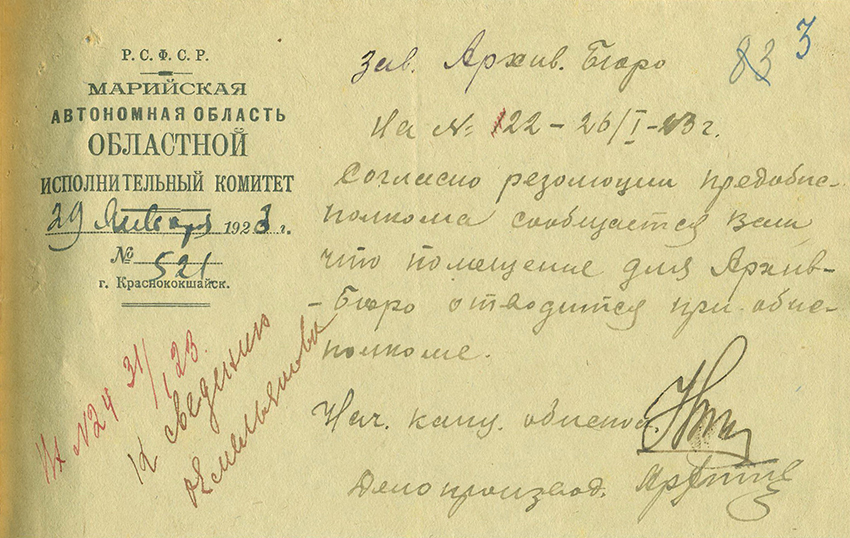 Р.С.Ф.С.Р.
МАРИЙСКАЯ
АВТОНОМНАЯ ОБЛАСТЬ
ОБЛАСТНОЙ
ИСПОЛНИТЕЛЬНЫЙ КОМИТЕТ
29 Января 1923 г.
№ 521
г. Краснококшайск.
83 3
Зав. Архив. Бюро
На № 122 – 26/I–23 г.
Согласно резолюции предобис-
полкома сообщается Вам,
что помещение для Архив-
-Бюро отводится при обис-
полкоме.
Нач. канц. обиспол.
Делопроизвод.
Вх №24 31/I 23.
К сведению